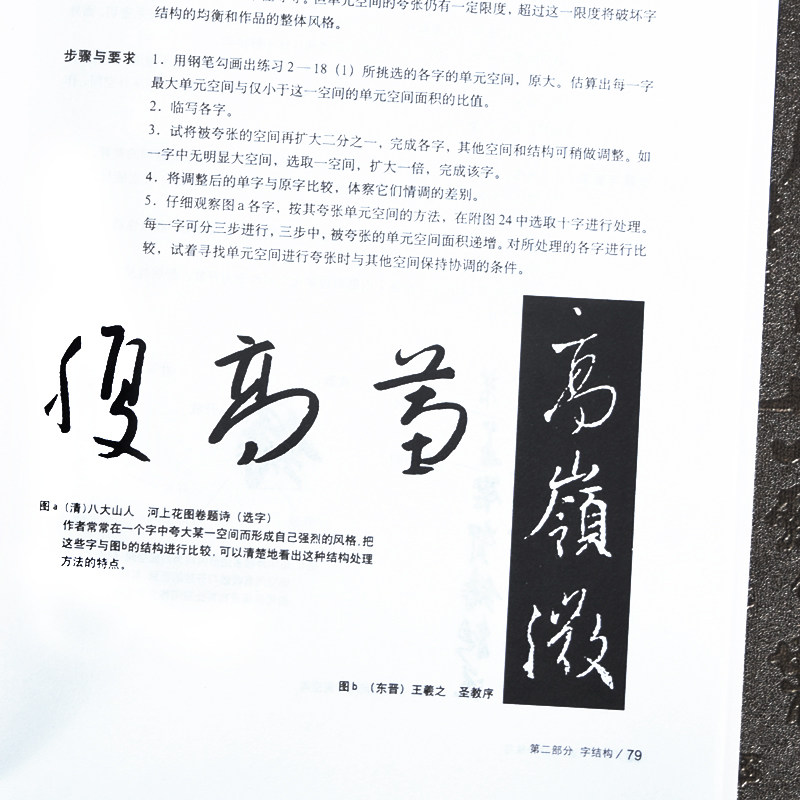 但单元空间的夸张仍有一定限度，超过这一限度将破坏字
结构的均衡和作品的整体风格。
步骤与要求
1．用钢笔勾画出练习2—18（1）所挑选的各字的单元空间，原大。估算出每一字
最大单元空间与仅小于这一空间的单元空间面积的比值。
2．临写各字。
3．试将被夸张的空间再扩大二分之一，完成各字，其他空间和结构可稍做调整。如
一字中无明显大空间，选取一空间，扩大一倍，完成该字。
4．将调整后的单字与原字比较，体察它们情调的差别。
5．仔细观察图a各字，按其夸张单元空间的方法，在附图24中选取十字进行处理。
每一字可分三步进行，三步中，被夸张的单元空间面积递增。对所处理的各字进行比
较，试着寻找单元空间进行夸张时与其他空间保持协调的条件。
高
高
嶺
微
图a（清）八大山人　河上花图卷题诗（选字）
作者常常在一个字中夸大某一空间而形成自己强烈的风格，把
这些字与图b的结构进行比较，可以清楚地看出这种结构处理
方法的特点。
图b　（东晋）王羲之　圣教序
第二部分　字结构 / 79